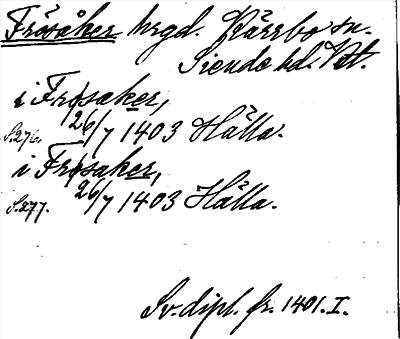 Frösåker hrgd. Kärrbo sn.
Siende hd. Vstl.
i Frøsaker,
S.276. 26/7 1403 Hälla.
i Frøsaker,
S.277. 26/7 1403 Hälla.
Sv. dipl. fr. 1401. I.